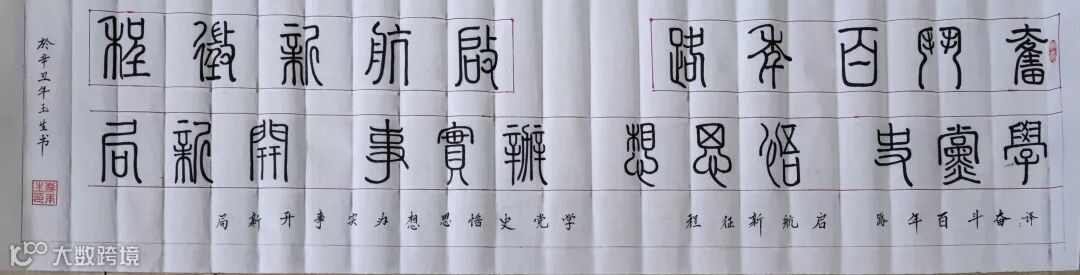 奮鬥百年路 啟航新徵程
學黨史 悟思想 辦實事 開新局
译:奋斗百年路 启航新征程 学党史悟思想办实事开新局
於辛丑年玉生书
大数跨境